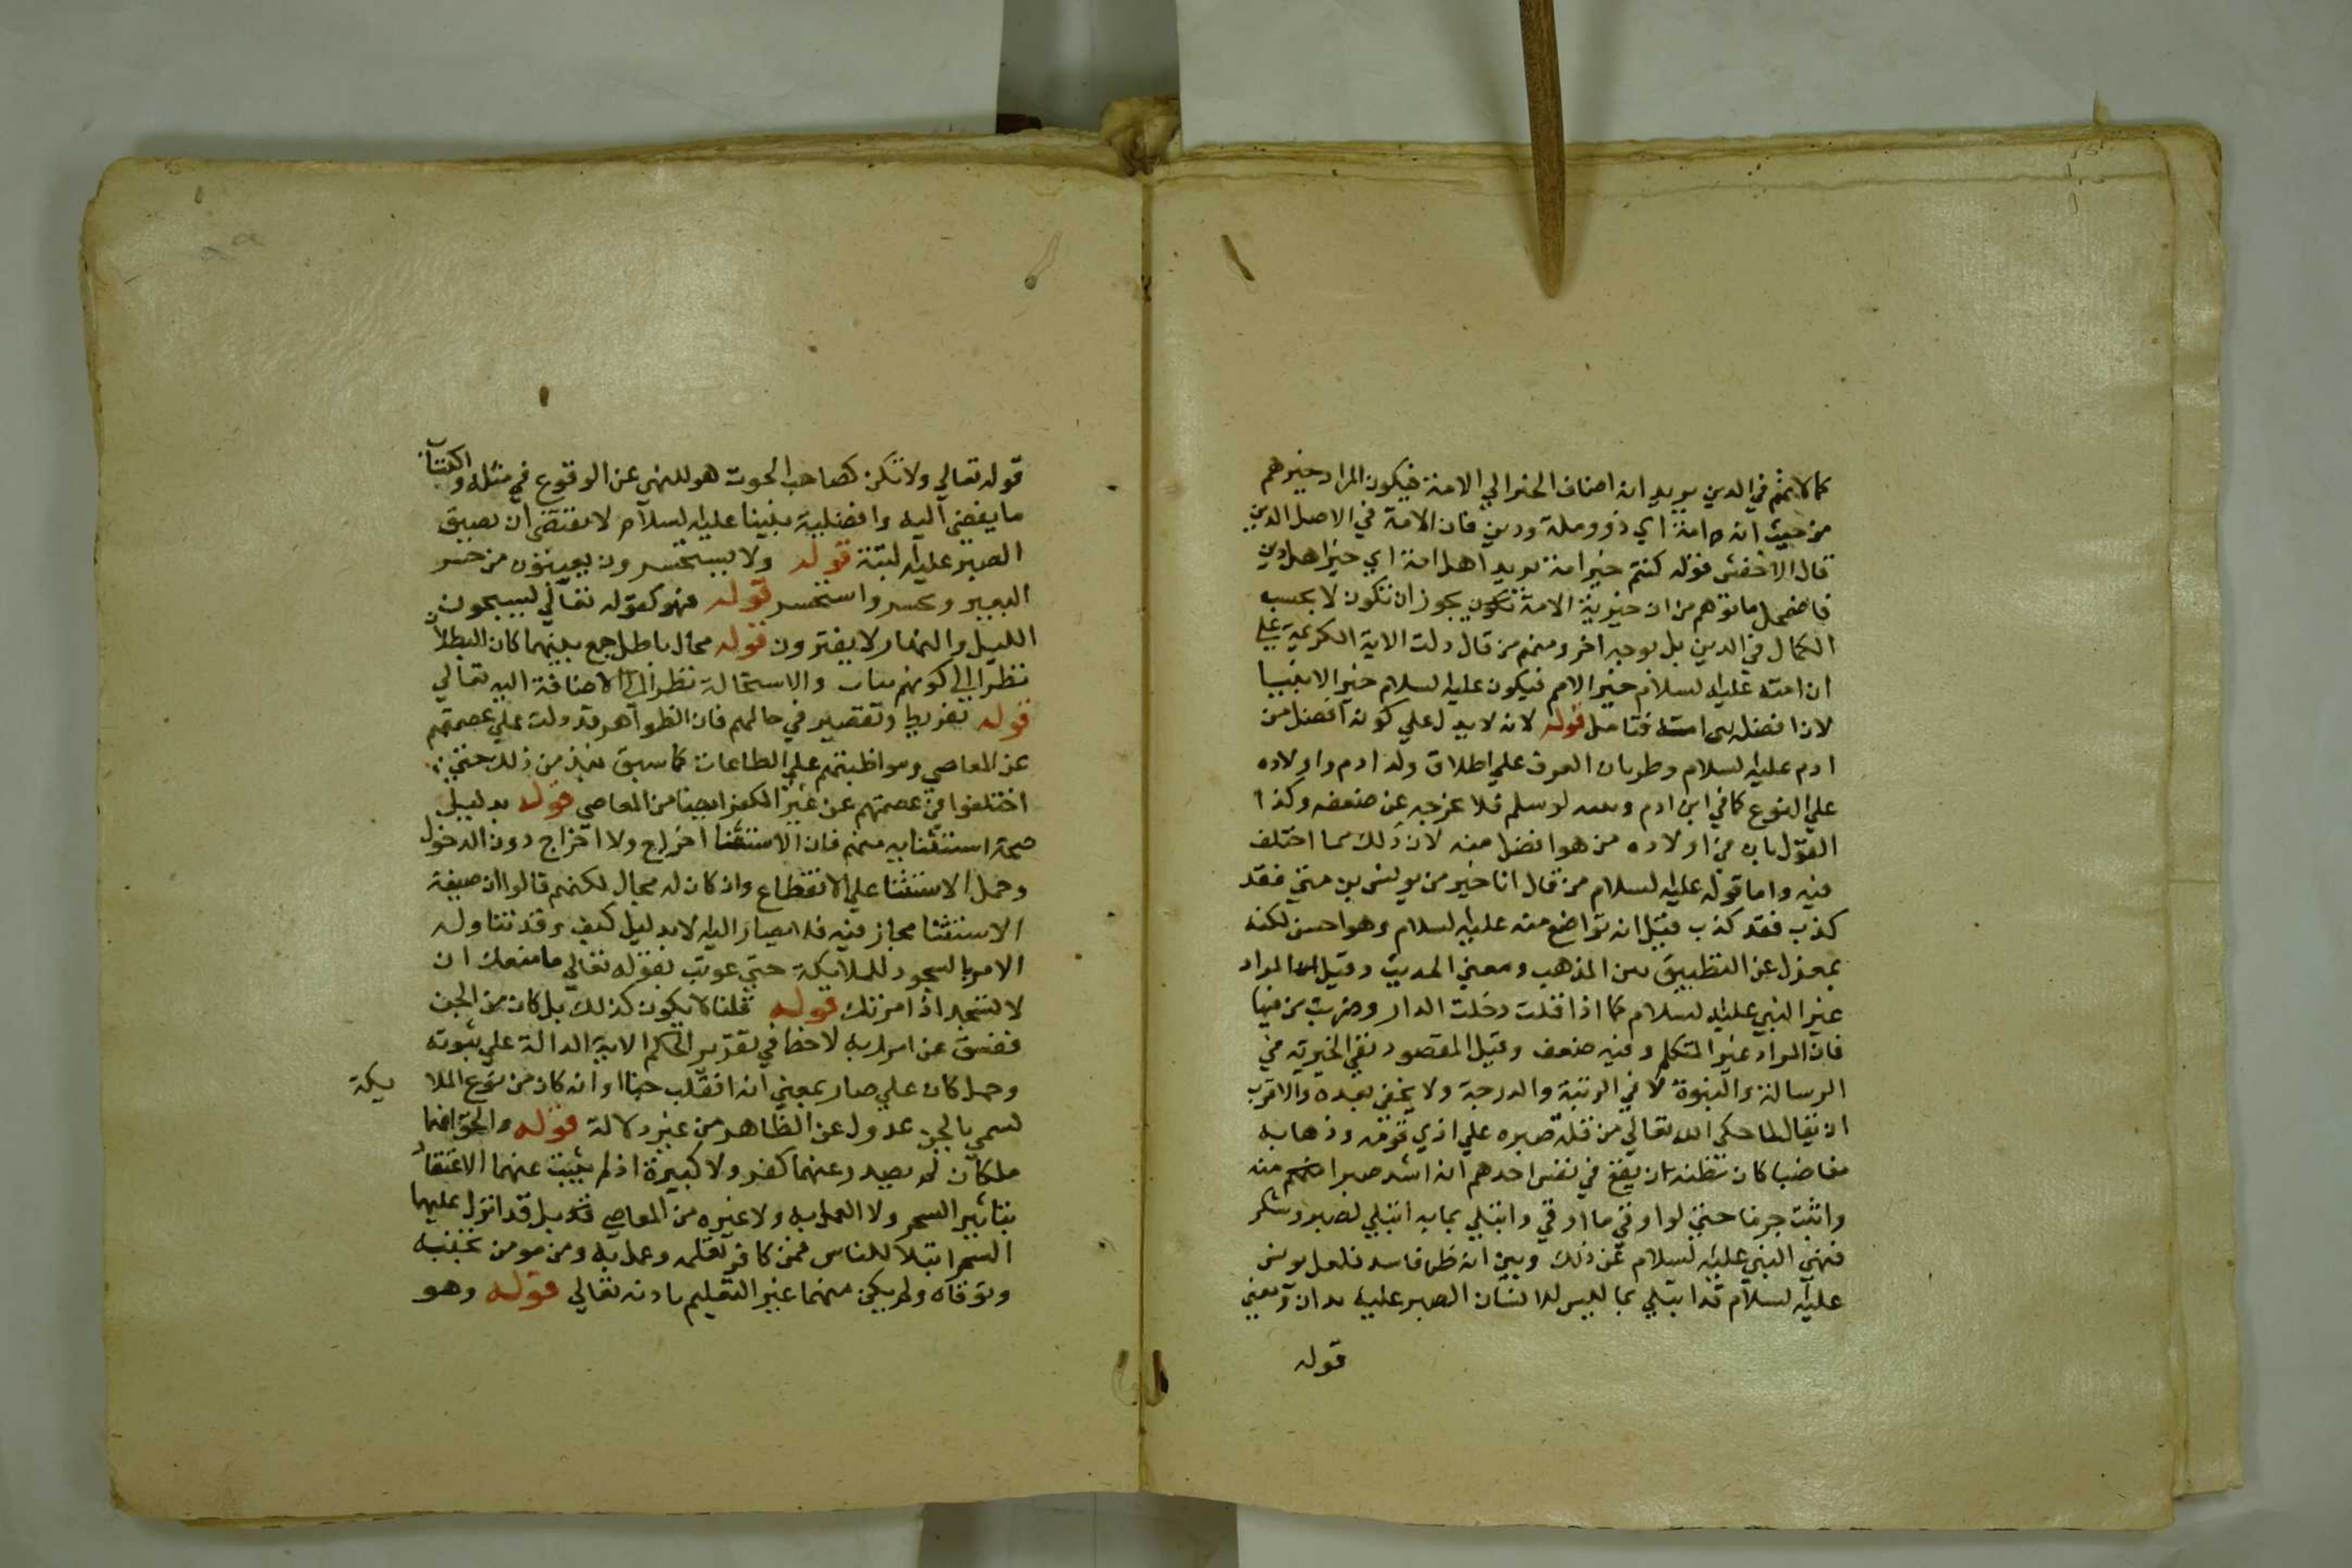 كمالاتهم في الدين يريد ان اضاف الخير الي الامة فيكون المراد خيرهم
من حيث انه امة اي ذوو ملة ودين فان الامة في الاصل الدين
قال الاخفش قوله كنتم خير امة يريد اهل امة اي خير اهل دين
فاضمحل ما توهم من ان خيرية الامة تكون يجوز ان تكون لا بحسب
الكمال في الدين بل بوجه اخر ومنهم من قال دلت الاية الكريمة علي
ان امته عليه لسلام خير الامم فيكون عليه لسلام خير الانبيا
لان افضل امته فتامل قوله لانه لا يدل علي كونه افضل من
ادم عليه لسلام وطريان العرف علي اطلاق ولد ادم واولاده
علي النوع كما في ابن ادم وبعد لو سلم فلا يخرجه عن ضعفه وكذا
القول بان من اولاده من هو افضل منه لان ذلك مما اختلف
فيه واما قوله عليه لسلام من قال انا خير من يونس بن متي فقد
كذب فقد كذب فقيل انه تواضع منه عليه لسلام وهو احسن لكنه
بمعزل عن التطبيق بين المذهب ومعني الحديث وقيل المراد
غير النبي عليه لسلام كما اذا قلت دخلت الدار وضربت من فيها
فان المراد غير المتكلم وفيه ضعف وقيل المقصود نفي الخيرية في
الرسالة والنبوة لا في الرتبة والدرجة ولا يخفي بعده والاقرب
ان يقال لما حكي الله تعالي من قلة صبره علي اذي قومه وذهابه
مغاضبا كان مظنة ان يقع في نفس احدهم انه اشد صبرا منه
واثبت جرما حتي لو اوقي ما اوقي وابتلي بما به ابتلي لصبر وشكر
فنهي النبي عليه لسلام عن ذلك وبين انه ظن فاسد فلعل يونس
عليه لسلام قد ابتلي بما ليس للانسان الصبر عليه بدان ومعني
قوله
قوله تعالي ولا تكن كصاحب الحوت هو للنهي عن الوقوع في مثله واكتساب
ما يفضي اليه وافضلية نبينا عليه لسلام لا يقتضي ان يضيق
الصبر عليه لبتة قوله ولا يستحسرون يعيون من حسر
البعير وحسر واستحسر قوله فهو كقوله تعالي يسبحون
الليل والنهار لا يفترون قوله محال باطل جمع بينهما كان البطلان
نظرا الي كونهم بنات والاستحالة نظرا الي الاضافة اليه تعالي
قوله تفريط وتقصير في حالهم فان الظواهر قد دلت علي عصمتهم
عن المعاصي ومواظبتهم علي الطاعات كما سبق نبذ من ذلك حتي
اختلفوا في عصمتهم عن غير الكفر ايضا من المعاصي قوله بدليل
صحة استثنايه منهم فان الاستثنا اخراج ولا اخراج دون الدخول
وحمل الاستثنا علي الانقطاع وان كان له مجال لكنهم قالوا ان صيغة
الاستثنا مجاز فيه فلا يصار اليه لا بدليل كيف وقد تناوله
الامر بالسجود للملايكة حتي عوتب بقوله تعالي ما منعك ان
لا تسجد اذ امرتك قوله قلنا لا يكون كذلك بل كان من الجن
ففسق عن امر ربه لاخفا في تقرير الحكم الاية الدالة علي ثبوته
وحمل كان علي صار بمعني انه انقلب جنا او انه كان من نوع الملا يكة
لسمي بالجن عدول عن الظاهر من غير دلالة قوله والحق انهما
ملكان لم يصدر عنهما كفر ولا كبيرة اذ لم يثبت عنهما الاعتقاد
بتاثير السحر ولا العمل به ولا غيره من المعاصي بل قد انزل عليهما
السحر ابتلا للناس فمن كافر تعلمه وعمل به ومن مومن تجنبه
وتوقاه ولم يكن منهما غير التعليم باذنه تعالي قوله وهو